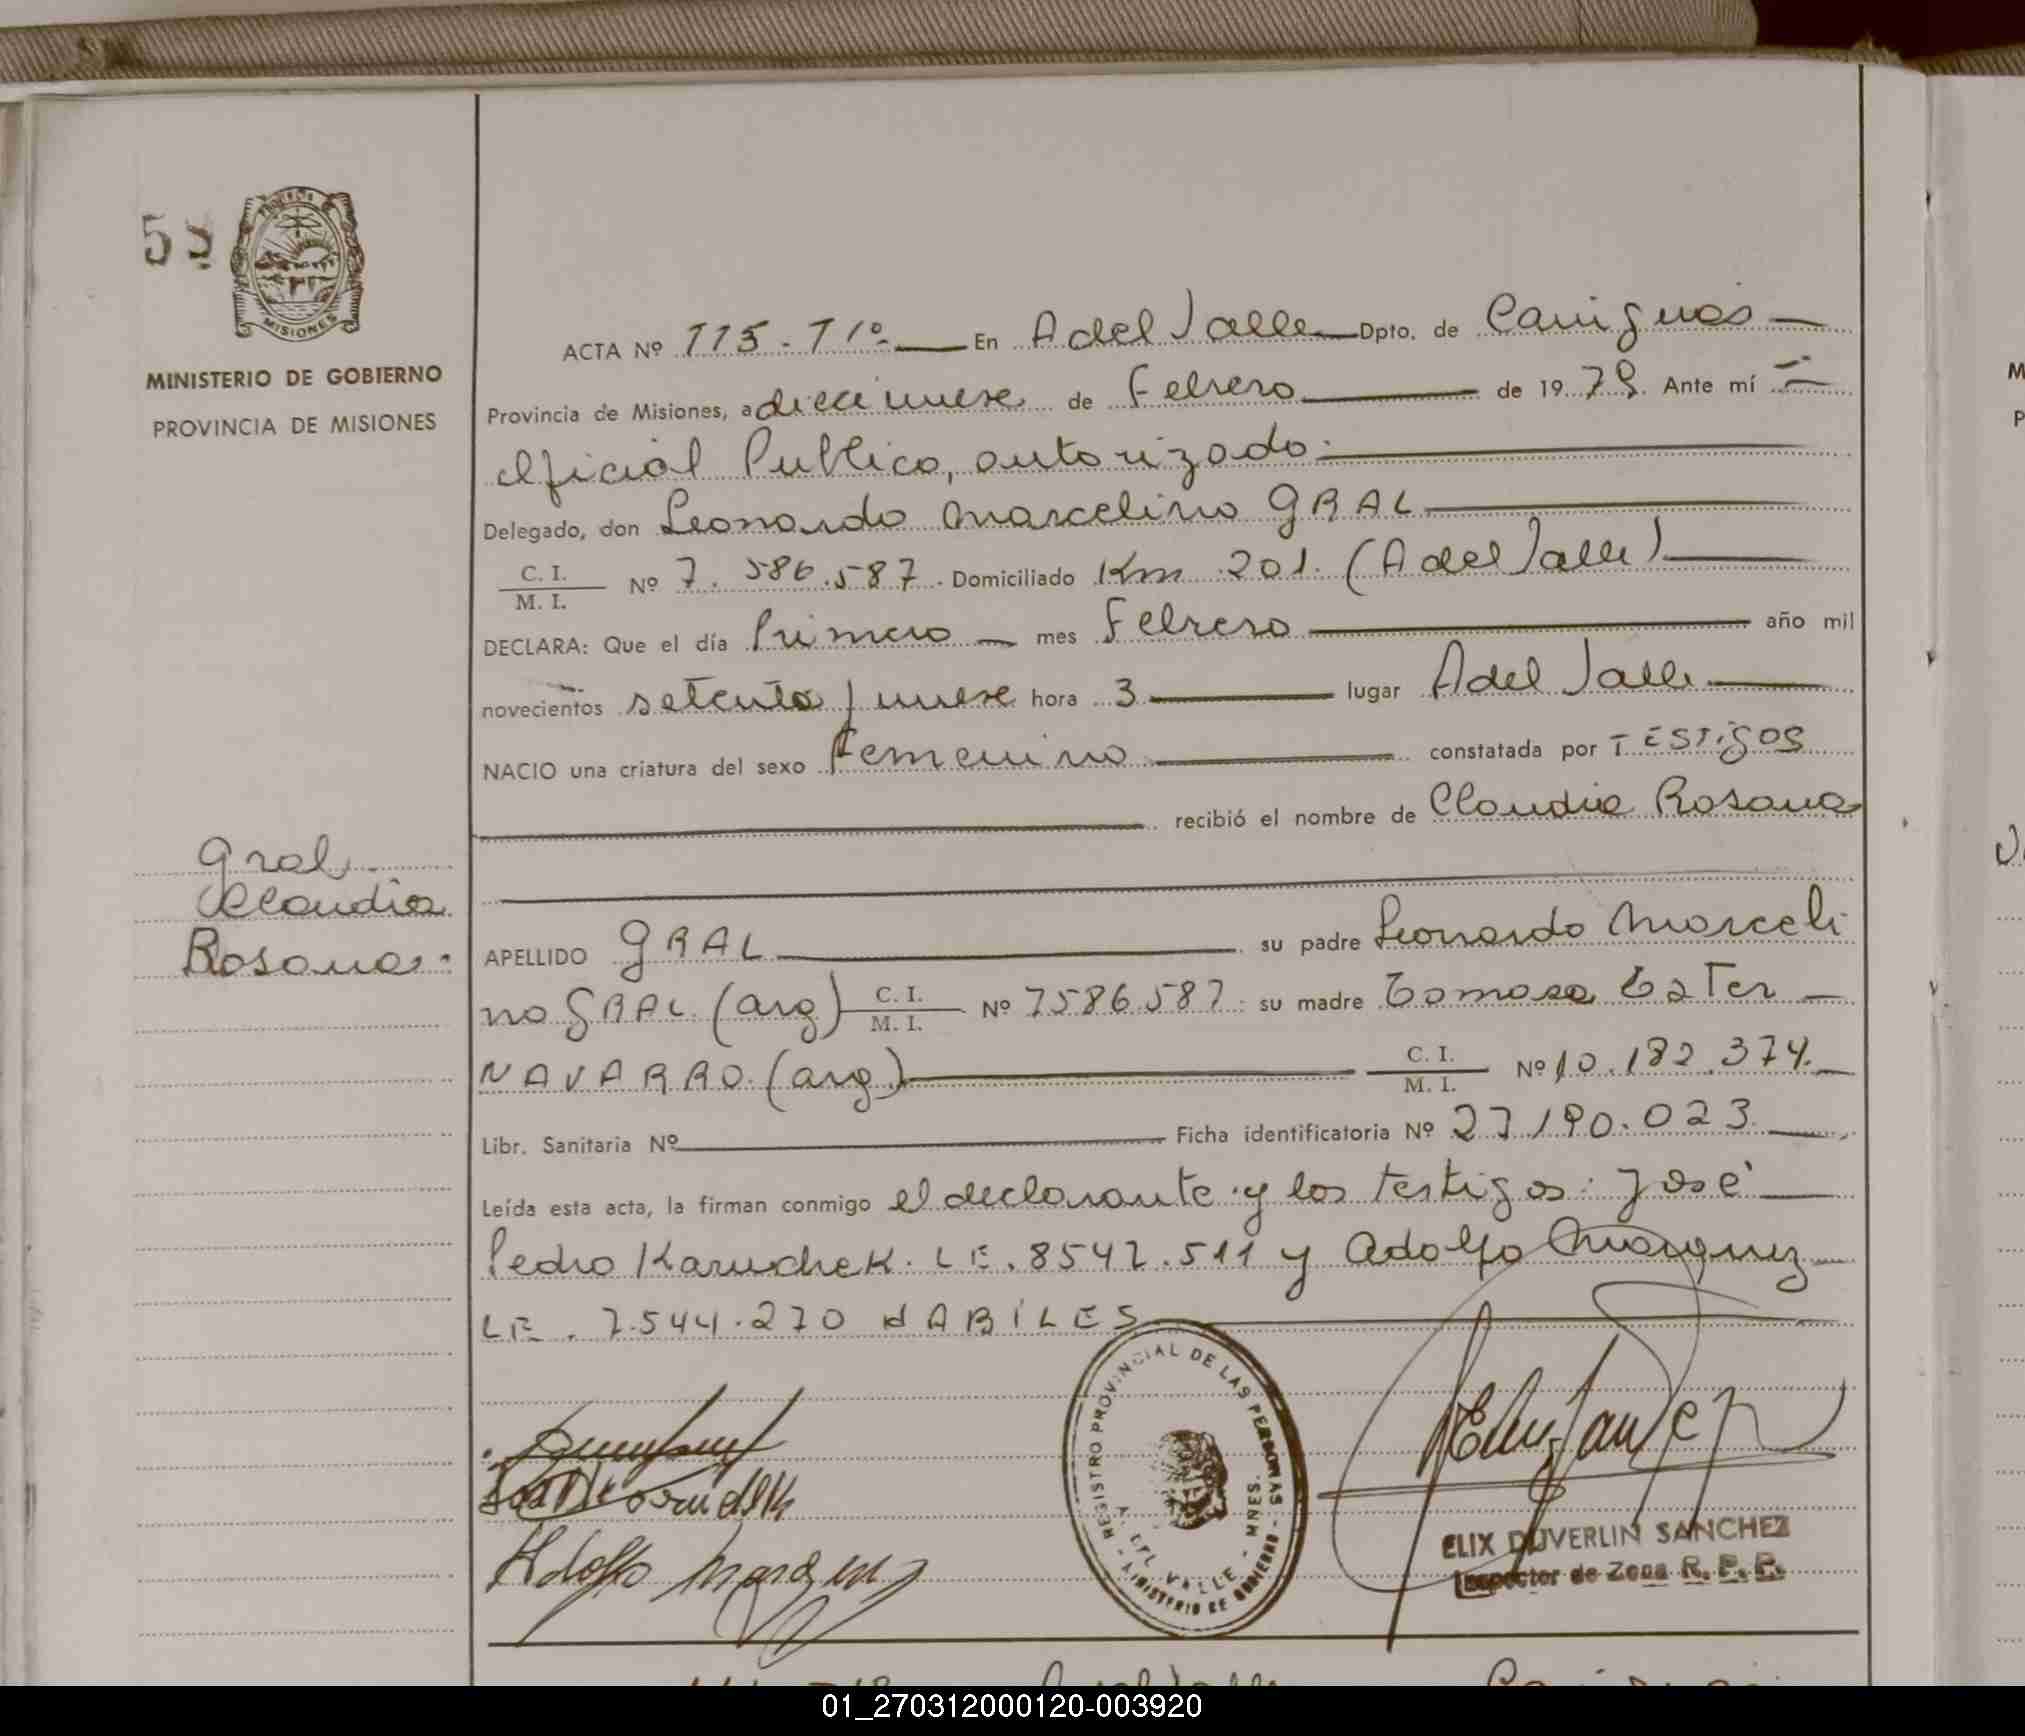 59
MISIONES
MINISTERIO DE GOBIERNO
PROVINCIA DE MISIONES
ACTA Nº 115. T1º En A del Valle Dpto. de Cainguás
Provincia de Misiones, a diecinueve de Febrero de 1979. Ante mí
Oficial Publico, autorizado
Delegado, don Leonardo Marcelino GRAL
C. I. / M. I. Nº 7.586.587. Domiciliado Km 201. (A del Valle)
DECLARA: Que el día Primero mes Febrero año mil
novecientos setenta y nueve hora 3 lugar A del Valle
NACIO una criatura del sexo Femenino constatada por TESTIGOS
recibió el nombre de Claudia Rosana
Gral
Claudia
Rosana.
APELLIDO GRAL su padre Leonardo Marceli
no GRAL (arg) C. I. / M. I. Nº 7586.587. su madre Tomasa Ester
NAVARRO (arg) C. I. / M. I. Nº 10.182.374.
Libr. Sanitaria Nº Ficha identificatoria Nº 27.190.023
Leída esta acta, la firman conmigo el declarante y los testigos: José
Pedro Karuchek. LE. 8542.511 y Adolfo Marquez
LE. 7.544.270 HABILES
REGISTRO PROVINCIAL DE LAS PERSONAS
MNES.
VALLE
MINISTERIO DE GOBIERNO
Adolfo Marquez
ELIX DUVERLIN SANCHEZ
Inspector de Zona R. P. P.
01_270312000120-003920